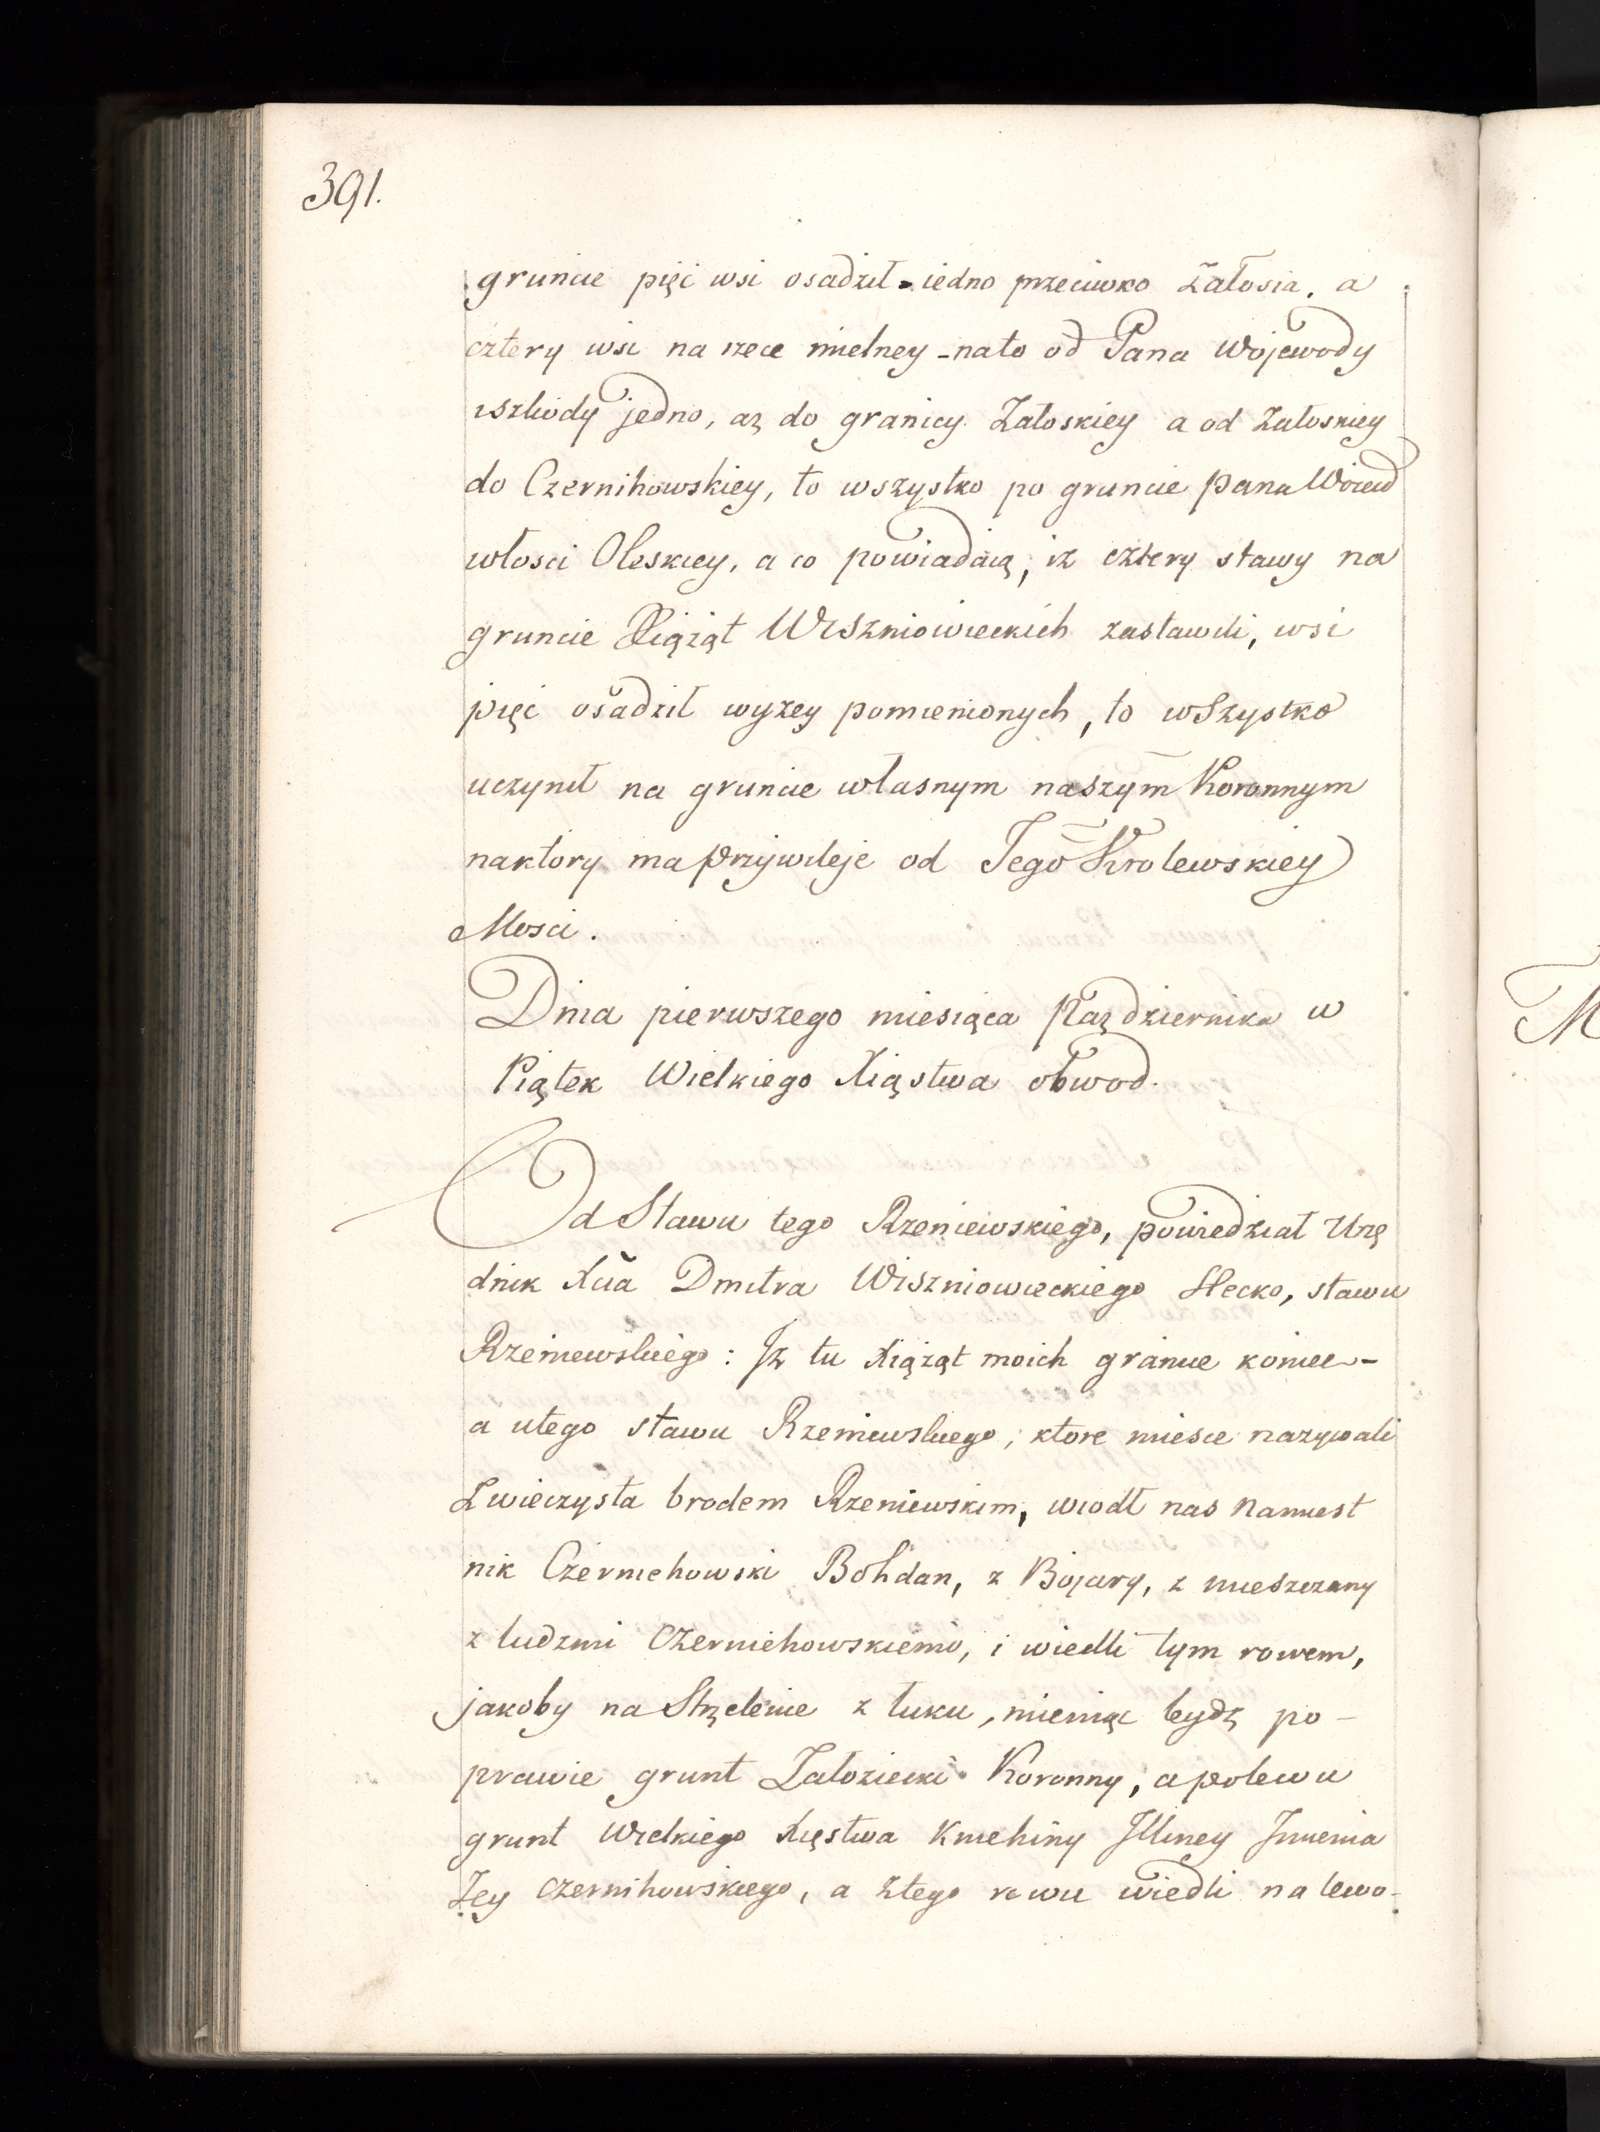 391.
gruncie pięć wsi osadził - iedno przeciwko Załosia, a
cztery wsi na rzece mielney - nato od Pana Wojewody
wszkody jedno, aż do granicy Załoskiey a od Załoskiey
do Czernihowskiey, to wszystko po gruncie pana Woiewd
włosci Oleskiey, a co powiadaią, iż cztery stawy na
gruncie Xiążąt Wiszniowieckich zastawili, wsi
pięć osadził wyżey pomienionych, to wszystko
uczynił na gruncie własnym naszym Koronnym
naktory ma przywileje od Jego Krolewskiey
Mosci.
Dnia pierwszego miesiąca Pazdziernika w
Piątek Wielkiego Xięstwa obwod.
Od Stawu tego Rzeniewskiego, powiedział Urzę
dnik Xcia Dmitra Wiszniowieckiego Stecko, stawu
Rzeniewskiego: Iż tu Xiążąt moich granice koniec -
a utego stawu Rzeniewskiego, ktore miesce nazywali
Zwieczysta brodem Rzeniewskim, wiodł nas Namiest
nik Czerniehowski Bohdan, z Bojary, z mieszczany
z ludzmi Czerniehowskiemi, i wiedli tym rowem,
jakoby na Strzelenie z łuku, mieniąc bydz po -
prawie grunt Załoziecki Koronny, a polewu
grunt Wielkiego Xięstwa Kniehiny Illiney Imienia
Jey Czernihowskiego, a ztego rowu wiedli na lewo -
M